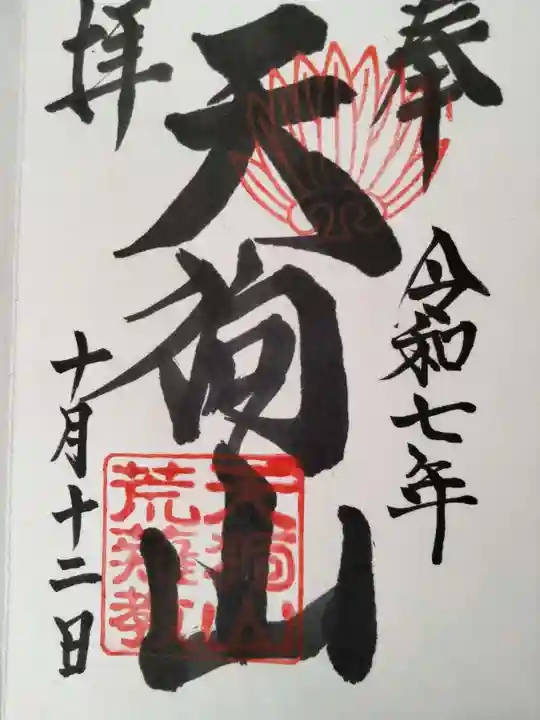 奉拝
天狗山
令和七年
十月十二日
天狗山
荒薙教